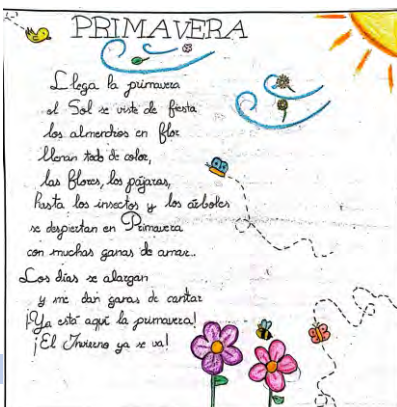 PRIMAVERA
Llega la primavera
el Sol se viste de fiesta
los almendros en flor
llenan todo de color,
las flores, los pájaros,
hasta los insectos y los árboles
se despiertan en Primavera
con muchas ganas de amar..
Los días se alargan
y me dan ganas de cantar
¡Ya está aquí la primavera!
¡El Invierno ya se va!